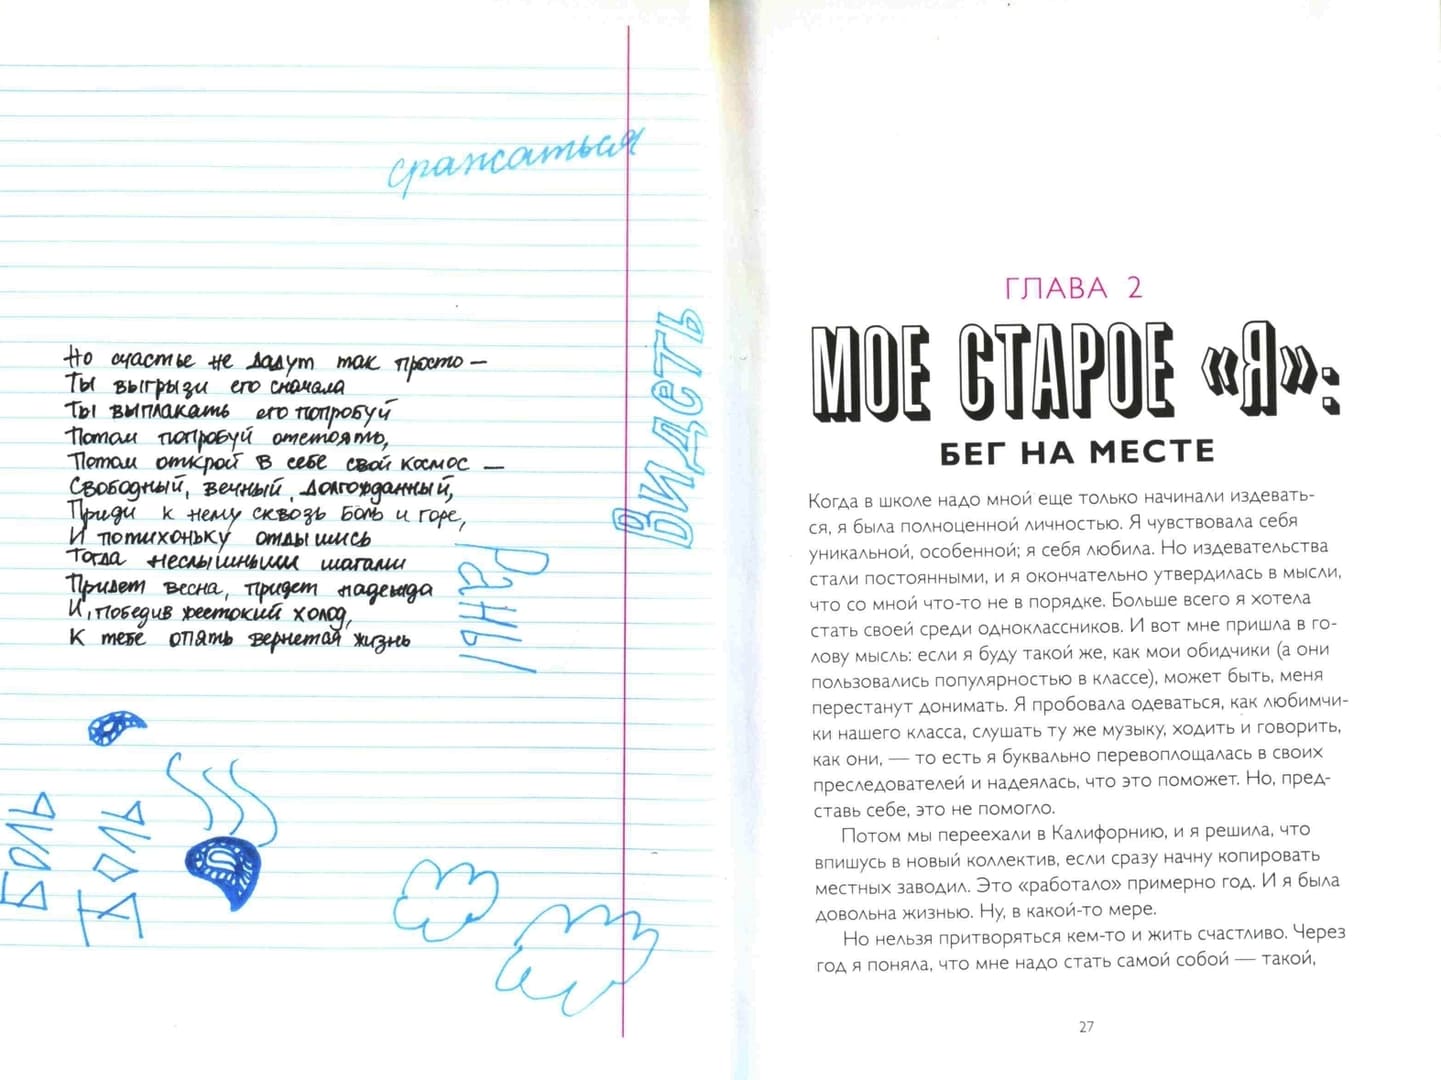 сражаться
Но счастье не дадут так просто —
Ты выгрызи его сначала
Ты выплакать его попробуй
Потом попробуй отстоять,
Потом открой в себе свой космос —
Свободный, вечный, долгожданный,
Приди к нему сквозь боль и горе,
И потихоньку отдышись
Тогда неслышными шагами
Придет весна, придет надежда
И, победив жестокий холод,
К тебе опять вернется жизнь
Видеть
Раны
Боль
Боль
ГЛАВА 2
МОЕ СТАРОЕ «Я»:
БЕГ НА МЕСТЕ
Когда в школе надо мной еще только начинали издевать-
ся, я была полноценной личностью. Я чувствовала себя
уникальной, особенной; я себя любила. Но издевательства
стали постоянными, и я окончательно утвердилась в мысли,
что со мной что-то не в порядке. Больше всего я хотела
стать своей среди одноклассников. И вот мне пришла в го-
лову мысль: если я буду такой же, как мои обидчики (а они
пользовались популярностью в классе), может быть, меня
перестанут донимать. Я пробовала одеваться, как любимчи-
ки нашего класса, слушать ту же музыку, ходить и говорить,
как они, — то есть я буквально перевоплощалась в своих
преследователей и надеялась, что это поможет. Но, пред-
ставь себе, это не помогло.
Потом мы переехали в Калифорнию, и я решила, что
впишусь в новый коллектив, если сразу начну копировать
местных заводил. Это «работало» примерно год. И я была
довольна жизнью. Ну, в какой-то мере.
Но нельзя притворяться кем-то и жить счастливо. Через
год я поняла, что мне надо стать самой собой — такой,
27